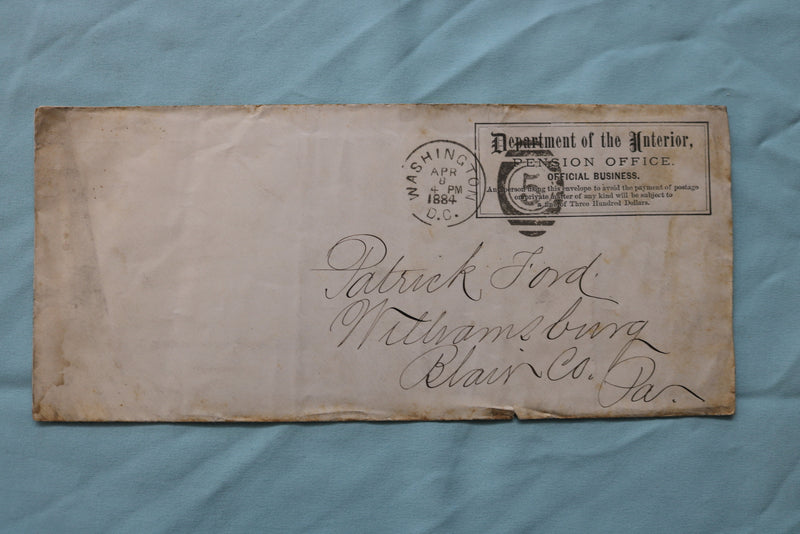 WASHINGTON
APR
8
4 PM
1884
D.C.
Department of the Interior,
PENSION OFFICE.
OFFICIAL BUSINESS.
Any person using this envelope to avoid the payment of postage
on private matter of any kind will be subject to
a fine of Three Hundred Dollars.
Patrick Ford.
Williamsburg
Blair Co.
Pa.